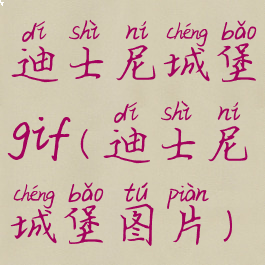 dí shì ní chéng bǎo
迪士尼城堡
dí shì ní
gif(迪士尼
chéng bǎo tú piàn
城堡图片)